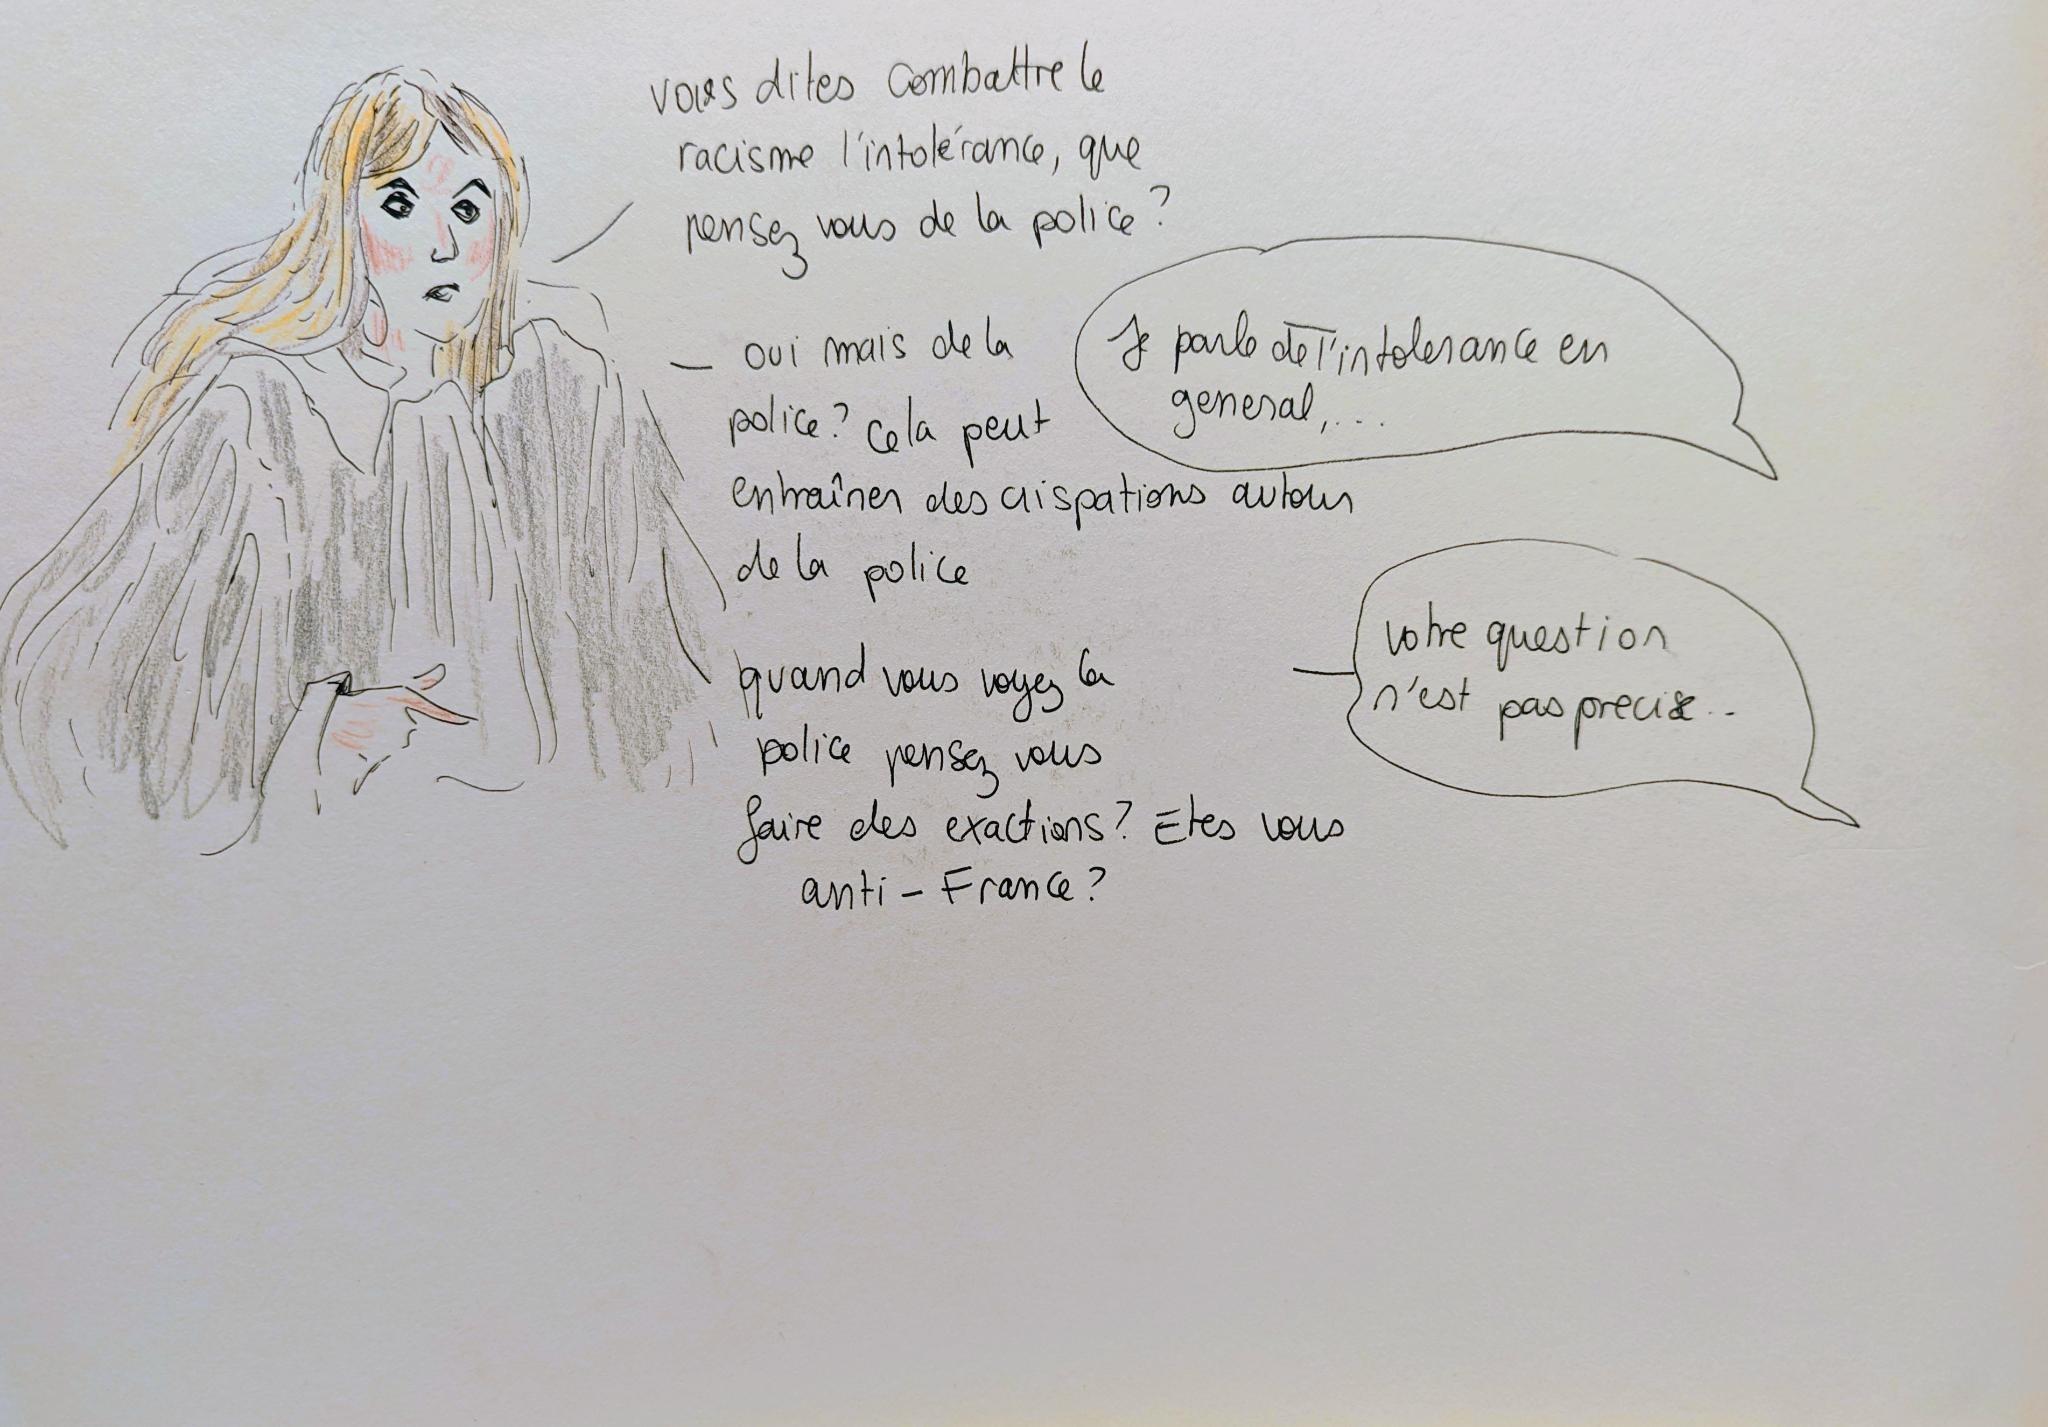 vous dites combattre le
racisme l'intolérance, que
pensez vous de la police?
Je parle de l'intolerance en
general,...
— oui mais de la
police? cela peut
entraîner des crispations autour
de la police
votre question
n'est pas precise..
quand vous voyez la
police pensez vous
faire des exactions? Etes vous
anti-France?